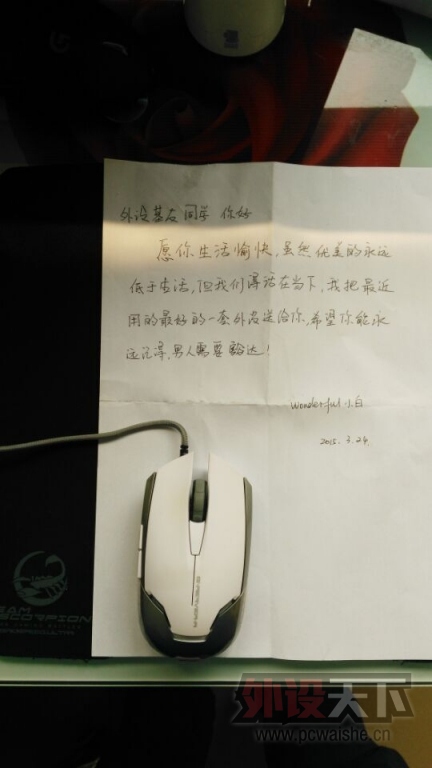 外设基友同学 你好
愿你生活愉快,虽然优美的永远
低于生活,但我们得活在当下,我把最近
用的最好的一套外设送给你,希望你能永
远记得,男人需要豁达!
wonderful 小白
2015. 3. 24.
SCORPION
外设天下
www.pcwaishe.cn